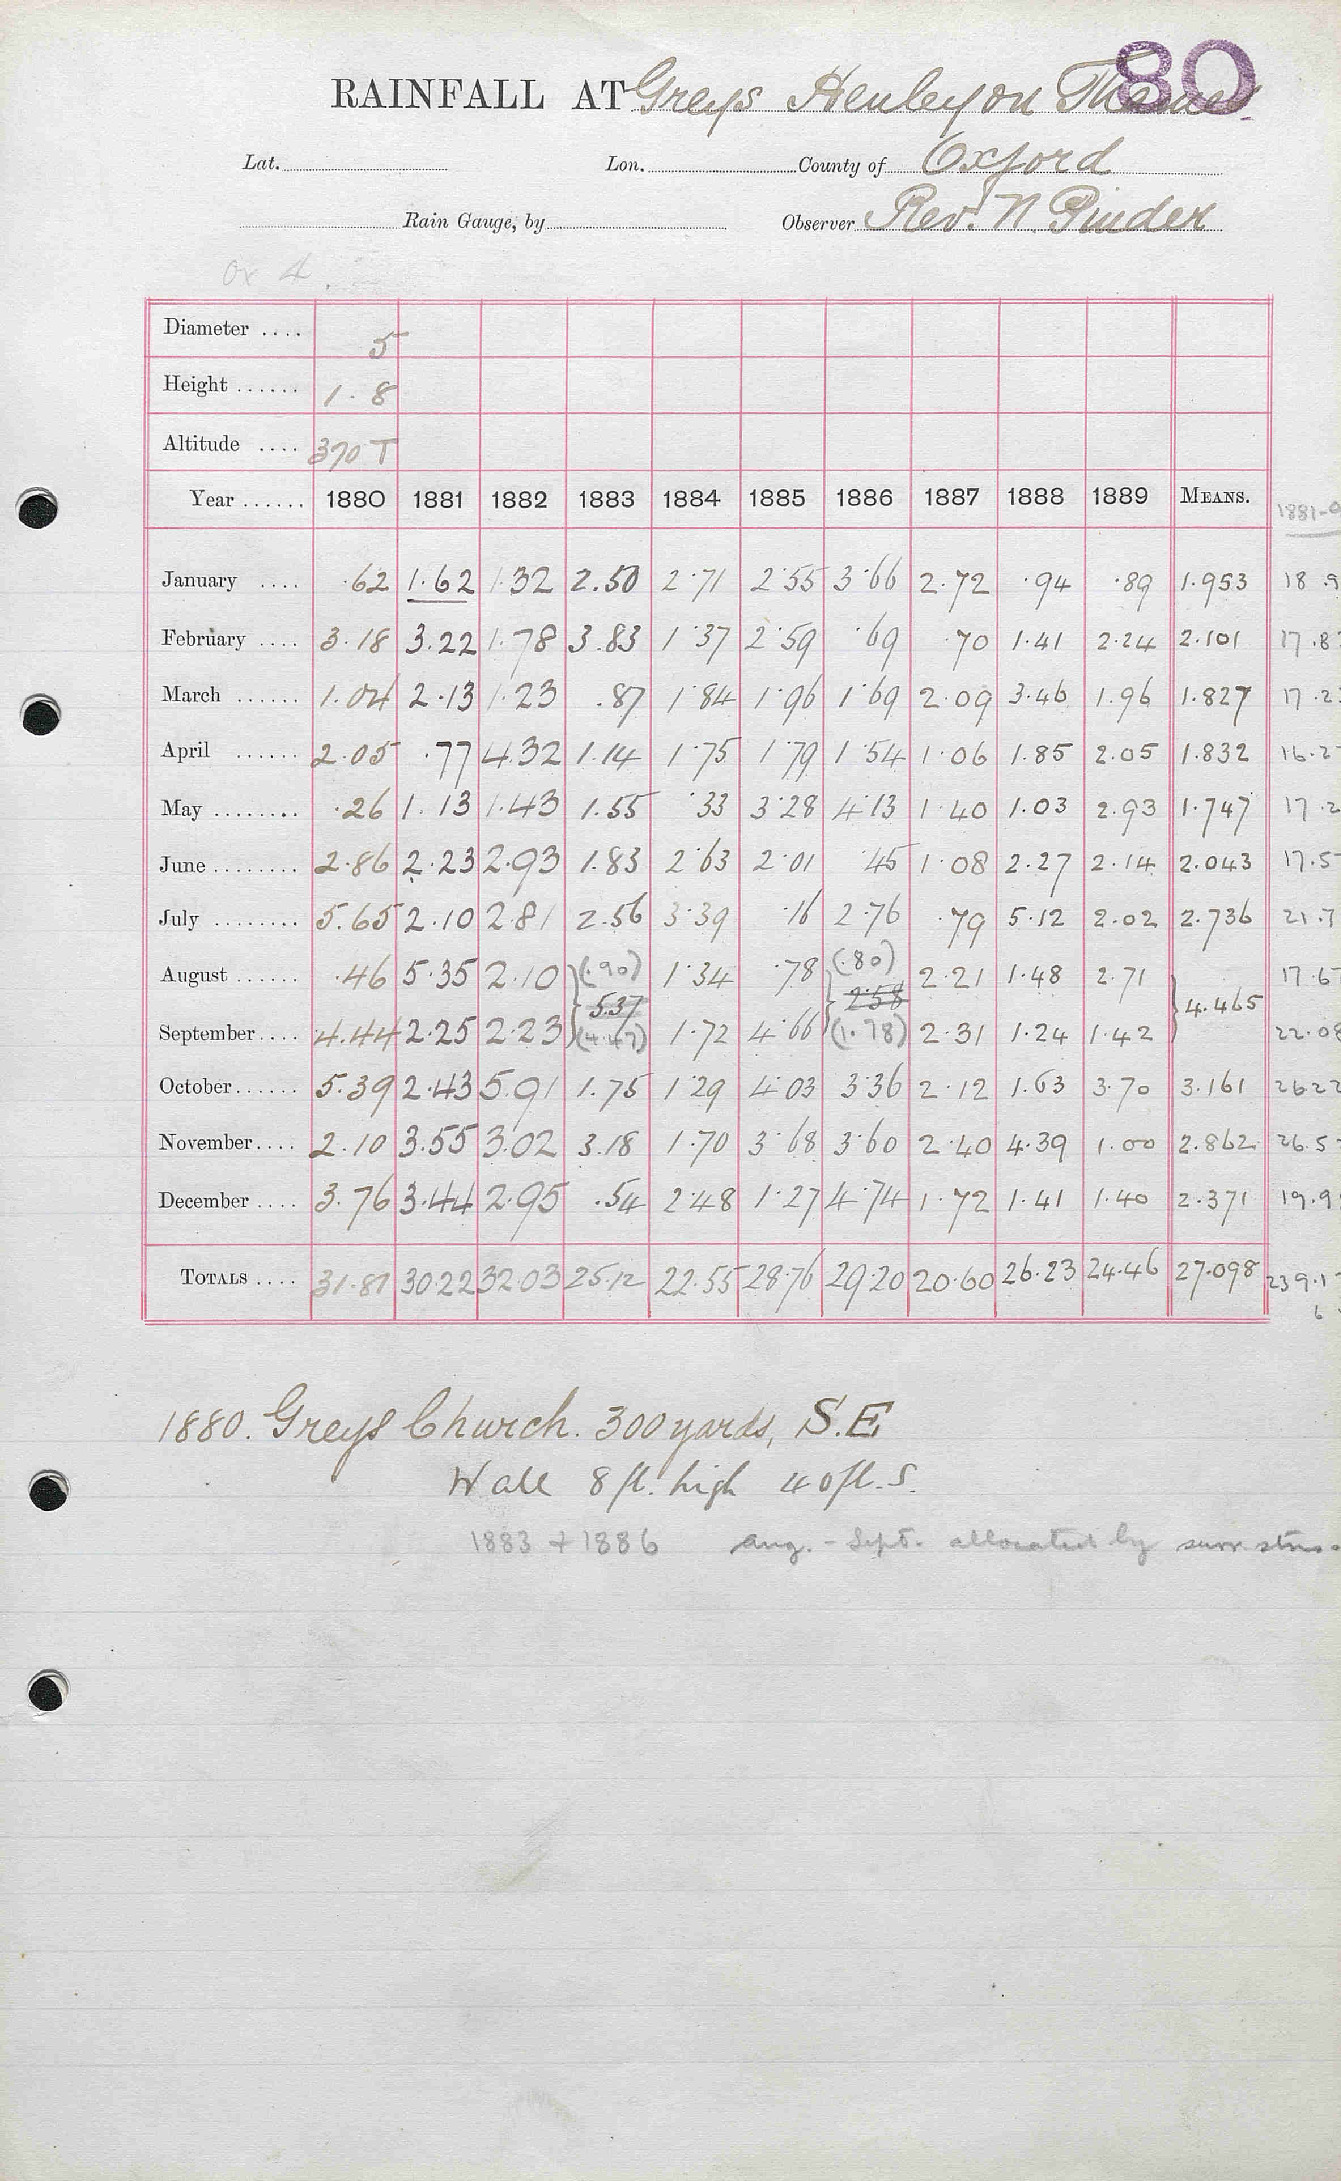 80
RAINFALL AT Greys Henley on Thames
Lat. Lon. County of Oxford
Rain Gauge, by Observer Rev. N Pinder
Ox 4
Diameter .... 5
Height ...... 1.8
Altitude .... 370 T
Year ...... 1880 1881 1882 1883 1884 1885 1886 1887 1888 1889 MEANS. 1881-
January .... .62 1.62 1.32 2.50 2.71 2.55 3.66 2.72 .94 .89 1.953 18.9
February .... 3.18 3.22 1.78 3.83 1.37 2.59 .69 .70 1.41 2.24 2.101 17.8
March ...... 1.04 2.13 1.23 .87 1.84 1.96 1.69 2.09 3.46 1.96 1.827 17.2
April ...... 2.05 .77 4.32 1.14 1.75 1.79 1.54 1.06 1.85 2.05 1.832 16.2
May ........ .26 1.13 1.43 1.55 .33 3.28 4.13 1.40 1.03 2.93 1.747 17.2
June ........ 2.86 2.23 2.93 1.83 2.63 2.01 .45 1.08 2.27 2.14 2.043 17.5
July ........ 5.65 2.10 2.81 2.56 3.39 .16 2.76 .79 5.12 2.02 2.736 21.7
August ...... .46 5.35 2.10 (.90) 1.34 .78 (.80) 2.21 1.48 2.71 17.67
5.37 2.58 4.465
September .... 4.44 2.25 2.23 (4.47) 1.72 4.66 (1.78) 2.31 1.24 1.42 22.08
October ...... 5.39 2.43 5.91 1.75 1.29 4.03 3.36 2.12 1.63 3.70 3.161 26.22
November .... 2.10 3.55 3.02 3.18 1.70 3.68 3.60 2.40 4.39 1.00 2.862 26.5
December .... 3.76 3.44 2.95 .54 2.48 1.27 4.74 1.72 1.41 1.40 2.371 19.9
TOTALS .... 31.81 30.22 32.03 25.12 22.55 28.76 29.20 20.60 26.23 24.46 27.098 239.1
6
1880. Greys Church. 300 yards, S.E
Wall 8 ft. high 40 ft. S.
1883 + 1886 Aug. - Sept. allocated by surr. stns.